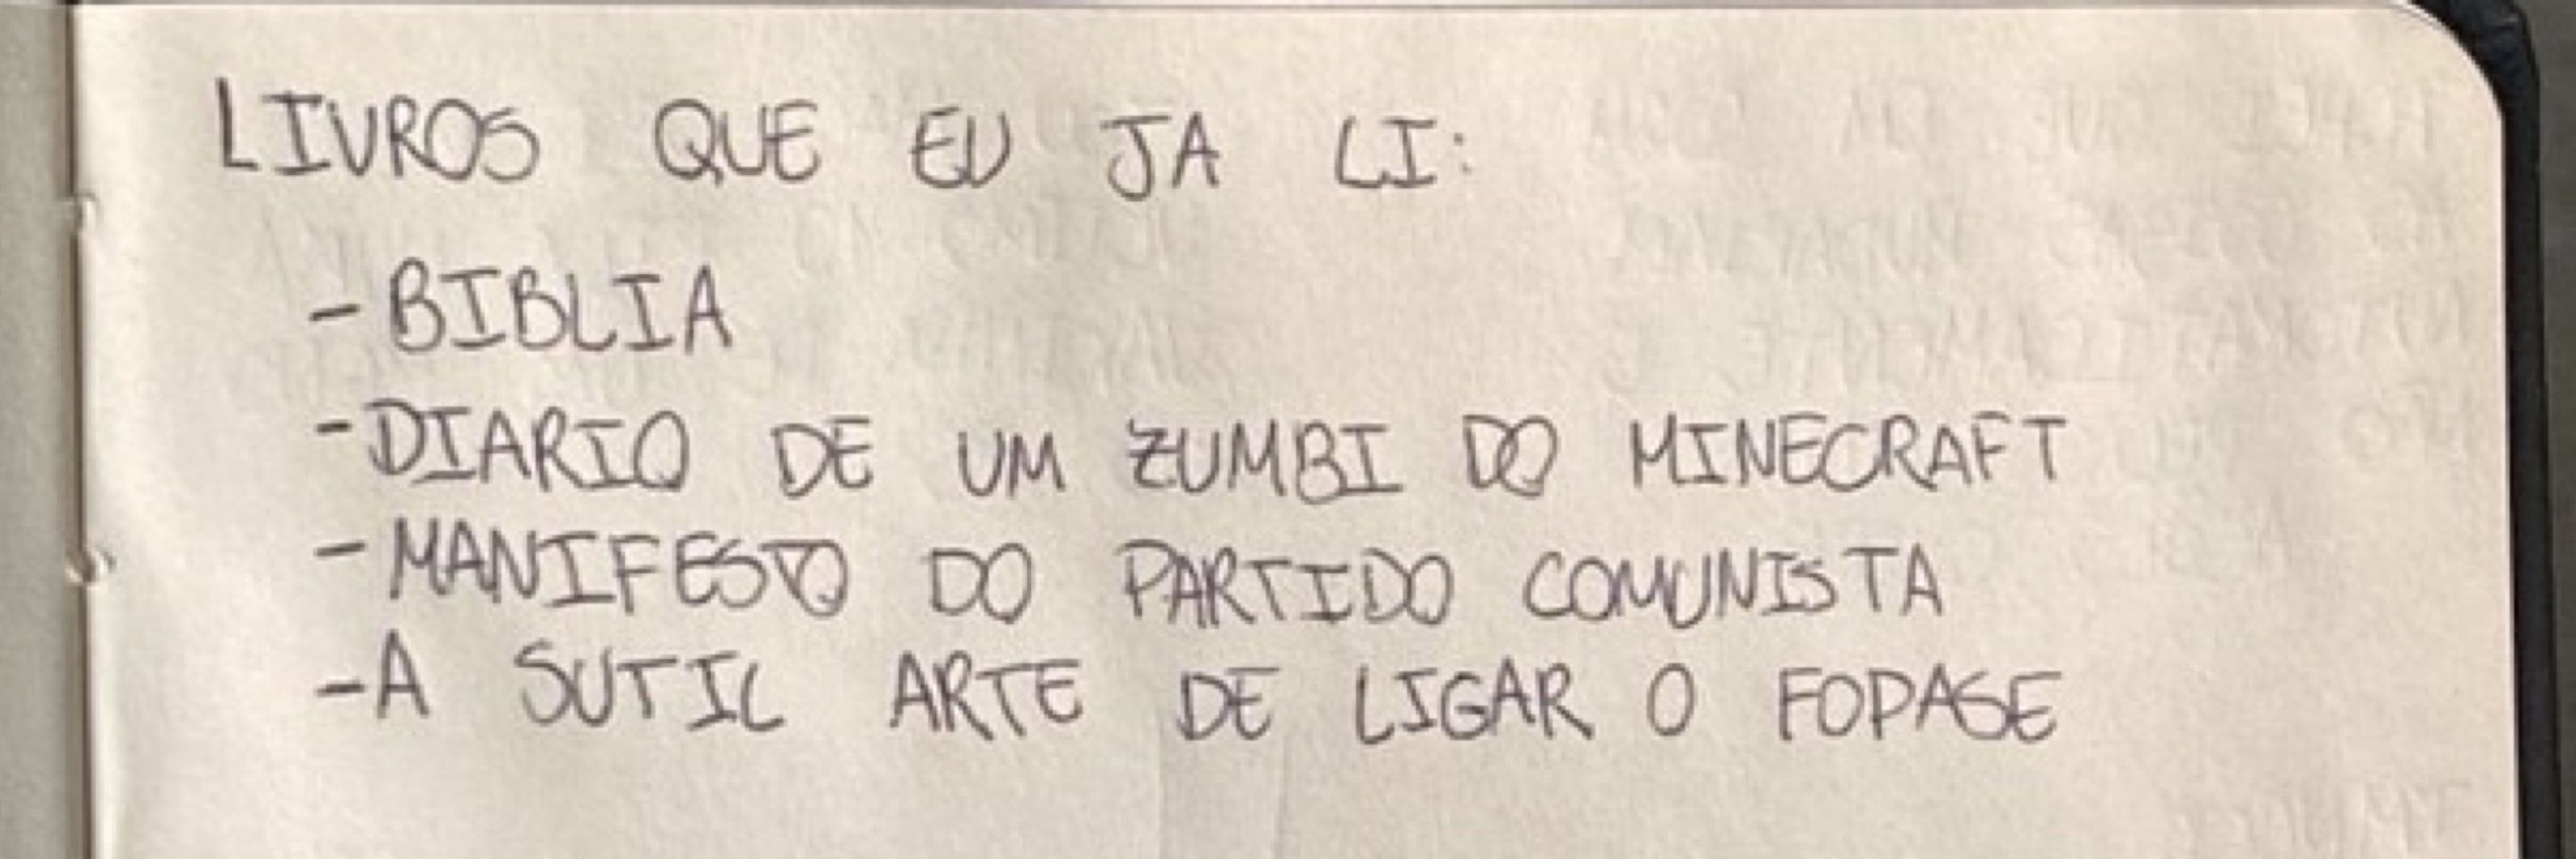 LIVROS QUE EU JA LI:
- BIBLIA
- DIARIO DE UM ZUMBI DO MINECRAFT
- MANIFESTO DO PARTIDO COMUNISTA
- A SUTIL ARTE DE LIGAR O FODASE